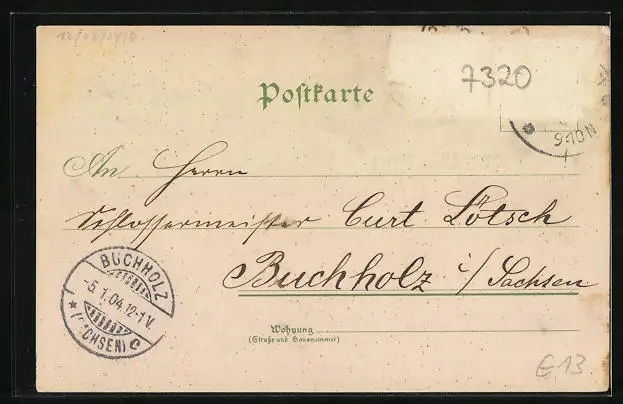 7320
Postkarte
9-10N
An Herrn
Schlossermeister Curt Lötsch
Buchholz i/Sachsen
BUCHHOLZ
-5.1.04.12-1V.
(SACHSEN) c
Wohnung
(Straße und Hausnummer)
€13